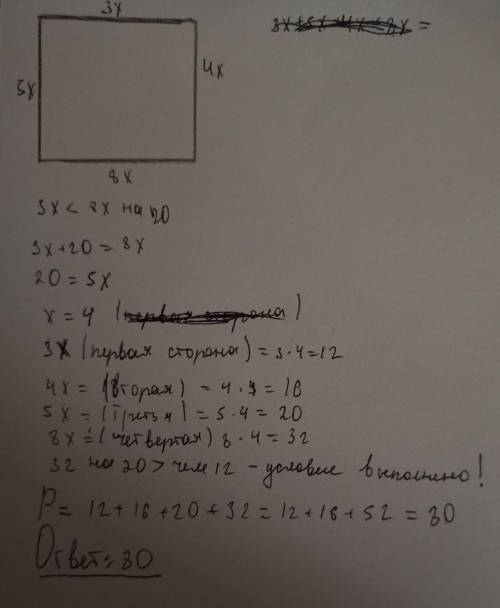 3x
5x
4x
8x
3x+5x+4x+8x =
3x < 8x на 20
3x+20=8x
20=5x
x=4 (первая сторона)
3x (первая сторона) = 3·4=12
4x = (вторая) = 4·4=16
5x = (третья) = 5·4=20
8x = (четвертая) 8·4=32
32 на 20 > чем 12 - условие выполнено!
P= 12+16+20+32=12+16+52=80
Ответ: 80